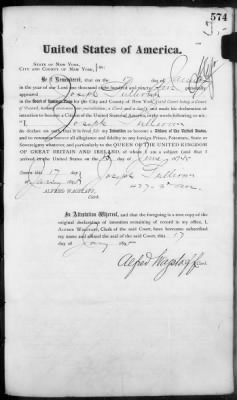 574
United States of America.
STATE OF NEW YORK,
CITY AND COUNTY OF NEW YORK, } ss:
Be it Remembered, that on the 17 day of
in the year of our Lord one thousand nine hundred and personally
appeared Joseph Sullivan
in the Court of Common Pleas for the City and County of New York,
and made his declaration of
Intention to become a Citizen of the United States of America, in the words following, to wit:
"I, Joseph Sullivan
do declare on oath, that it is bona fide my Intention to become a Citizen of the United States,
and to renounce forever all allegiance and fidelity to any foreign Prince, Potentate, State or
Sovereignty whatever, and particularly to the QUEEN OF THE UNITED KINGDOM
OF GREAT BRITAIN AND IRELAND, of whom I am a subject (and that I
arrived in the United States on the day of June
this 17
day of 189 Joseph Sullivan
ALFRED WAGSTAFF,
Clerk.
In Attestation Whereof, and that the foregoing is a true copy of the
original declaration of intention remaining of record in my office, I,
ALFRED WAGSTAFF, Clerk of the said Court, have hereunto subscribed
my name and affixed the seal of the said Court, this 17
day of Jany 189
Alfred Wagstaff Clerk.